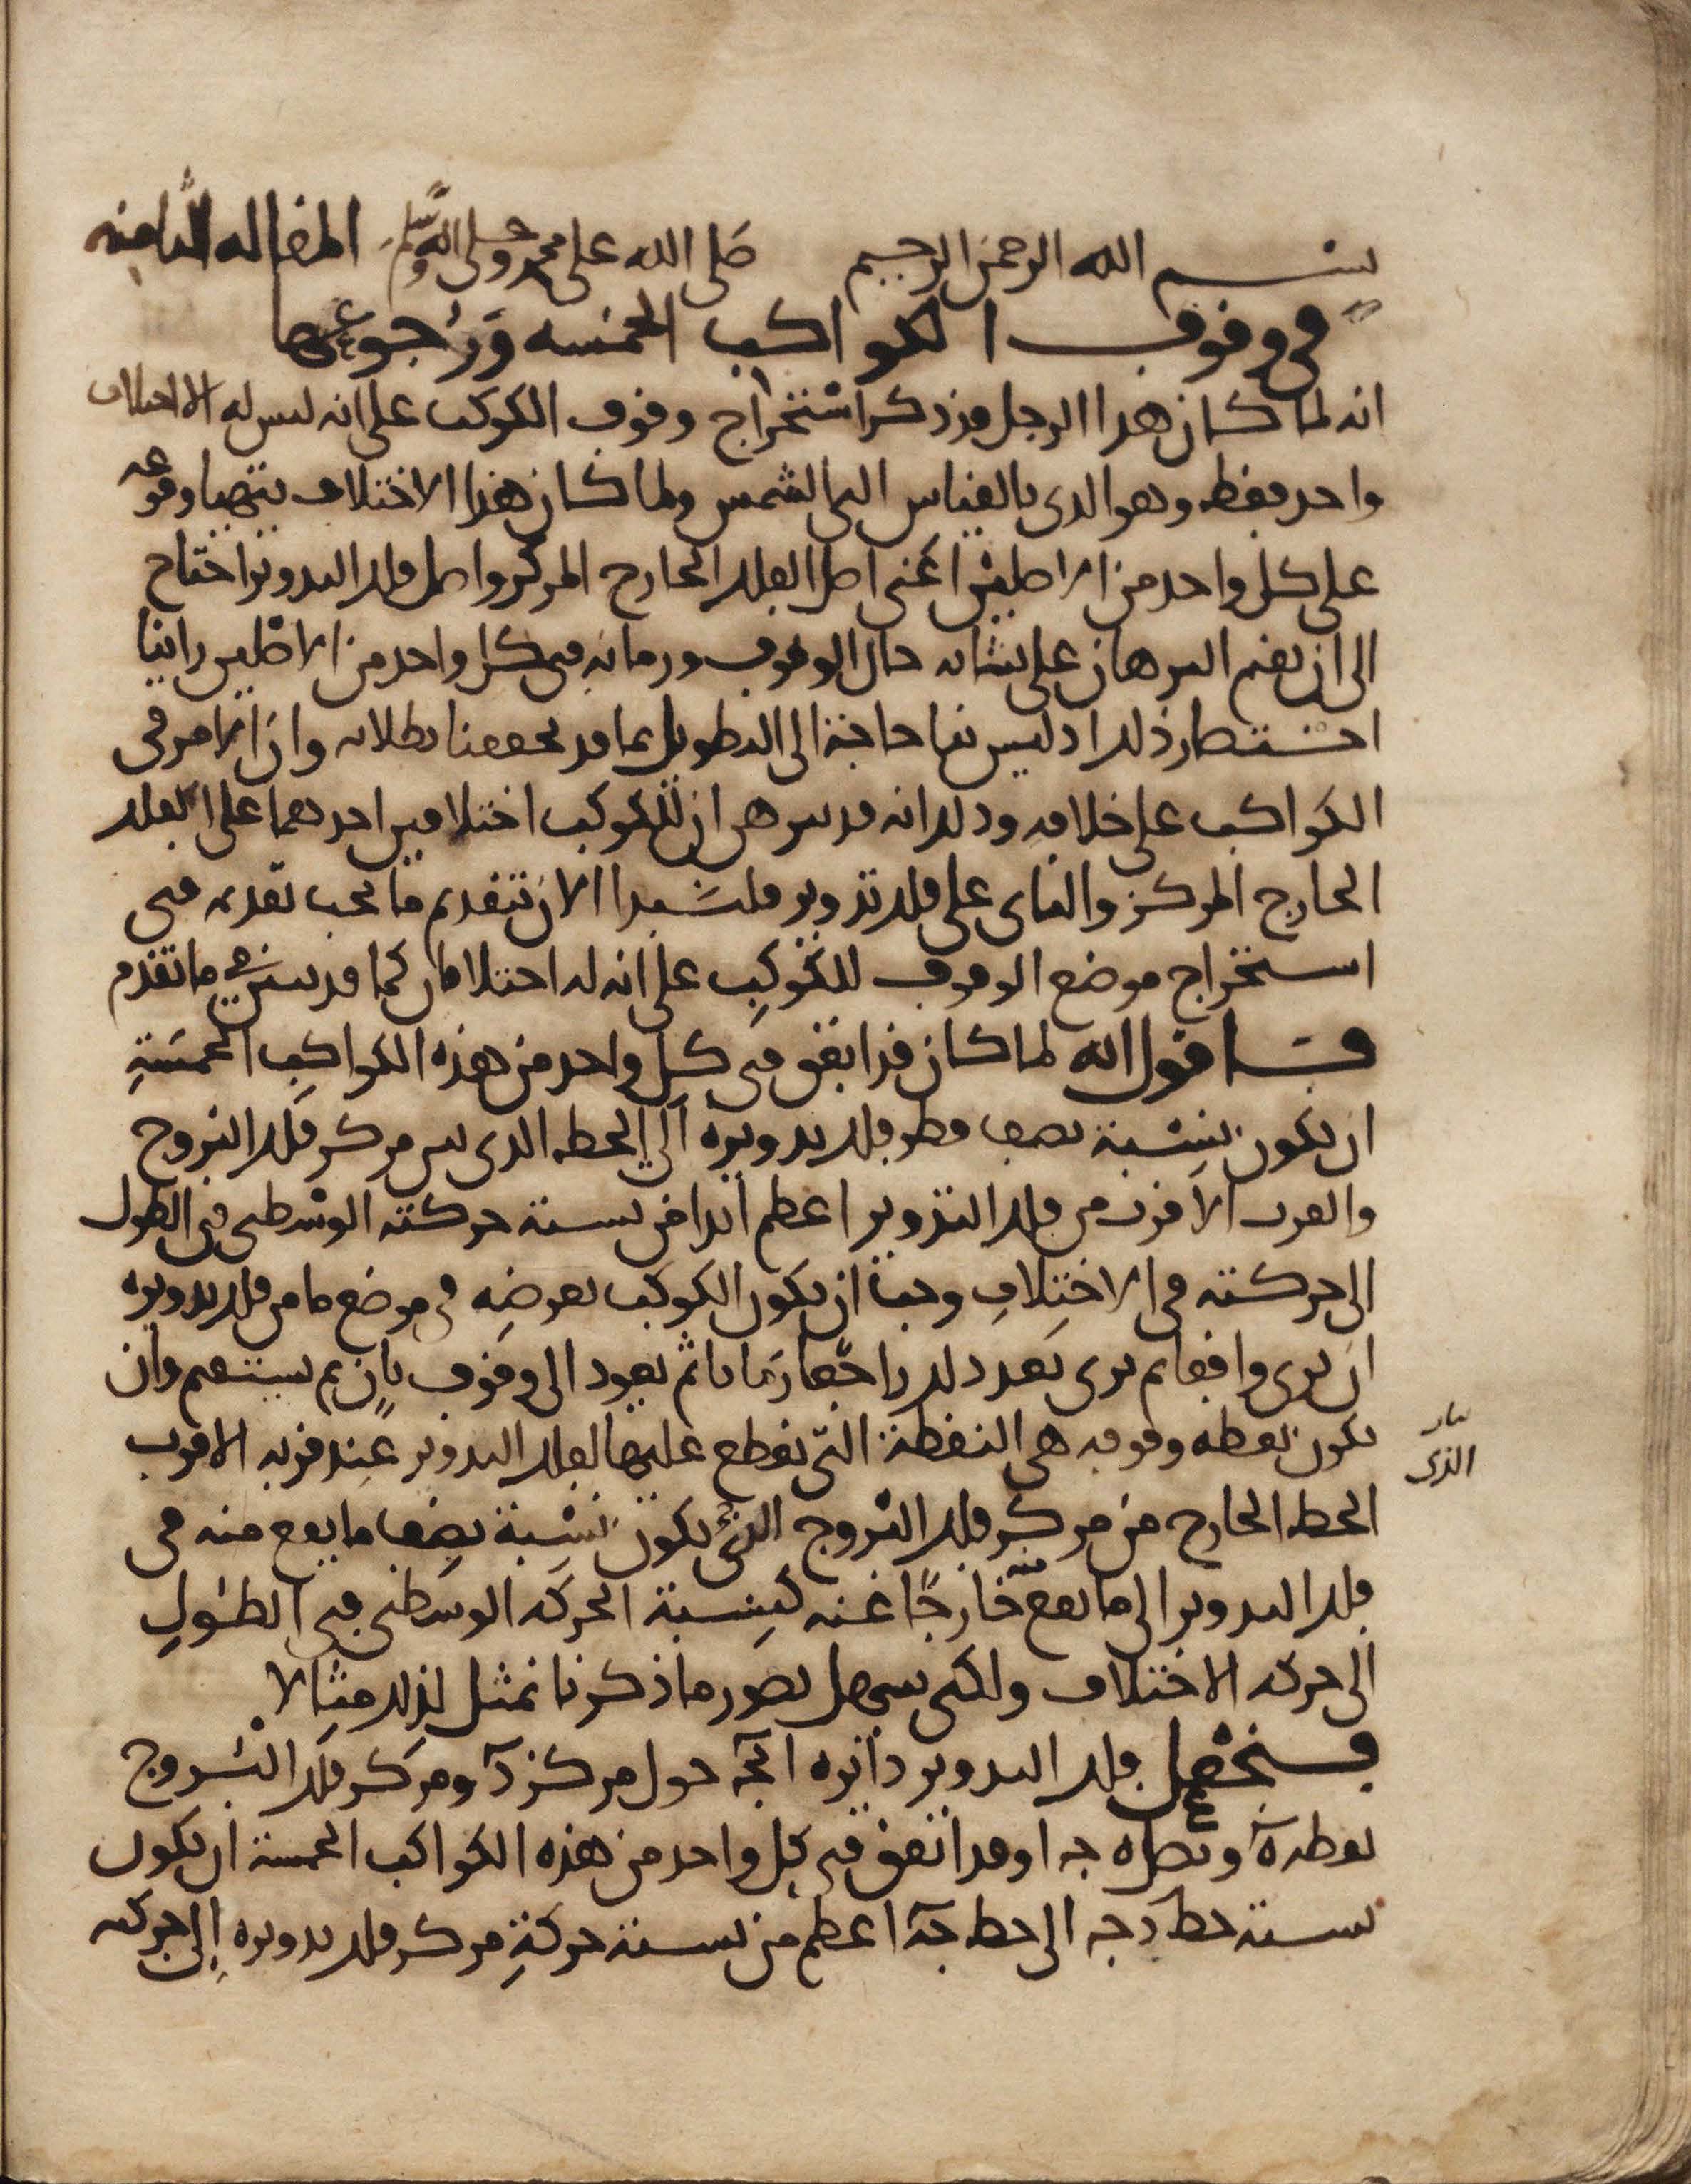 بسم الله الرحمن الرحيم صلى الله على محمد وعلى اله وسلم المقاله الثامنه
في وقوف الكواكب الخمسه ورجوعها
انه لما كان هذا الرجل قد ذكر استخراج وقوف الكوكب على انه ليس له الا اختلاف
واحد فقط وهو الذي بالقياس الى الشمس ولما كان هذا الاختلاف يتهيا وقوعه
على كل واحد من الاصلين اعني اصل الفلك الخارج المركز واصل فلك التدوير احتاج
الى ان يقيم البرهان على حال الوقوف وزمانه في كل واحد من الاصلين راينا
اختصار ذلك اذ ليس بنا حاجة الى التطويل بما قد تحققنا بطلانه وان الامر في
الكواكب على خلافه وذلك انه قد تبرهن ان للكوكب اختلافين احدهما على الفلك
الخارج المركز والثاني على فلك تدوير فلنبدا الان بتقديم ما يجب تقديمه في
استخراج موضع الوقوف للكوكب على انه له اختلافان كما قد تبين في ما تقدم
فاقول انه لما كان قد اتفق في كل واحد من هذه الكواكب الخمسة
ان يكون نسبة نصف قطر فلك تدويره الى الخط الذي بين مركز فلك البروج
والقرب الاقرب من فلك التدوير اعظم ابدا من نسبة حركته الوسطى في الطول
الى حركته في الاختلاف وجب ان يكون الكوكب يعرض له في موضع ما من فلك تدويره
ان يرى واقفا ثم يرى بعد ذلك راجعا زمانا ثم يعود الى وقوف ثان ثم يستقيم وان
يكون نقطه وقوفه هي النقطة التي يقطع عليها لفلك التدوير عند قربه الاقرب
الخط الخارج من مركز فلك البروج الذي يكون نسبة نصف ما يقع منه في
فلك التدوير الى ما يقع منه خارجا عنه كنسبة الحركه الوسطى في الطول
الى حركه الاختلاف ولكي يسهل تصور ما ذكرنا نمثل لذلك مثالا
فنجعل فلك التدوير دائره ابجـ حول مركز د ومركز فلك البروج
نقطة ه ونصل ه جـ ا وقد اتفق في كل واحد من هذه الكواكب الخمسة ان يكون
نسبة خط د جـ الى خط جـ ه اعظم من نسبة حركة مركز فلك تدويره الى حركته
الذي